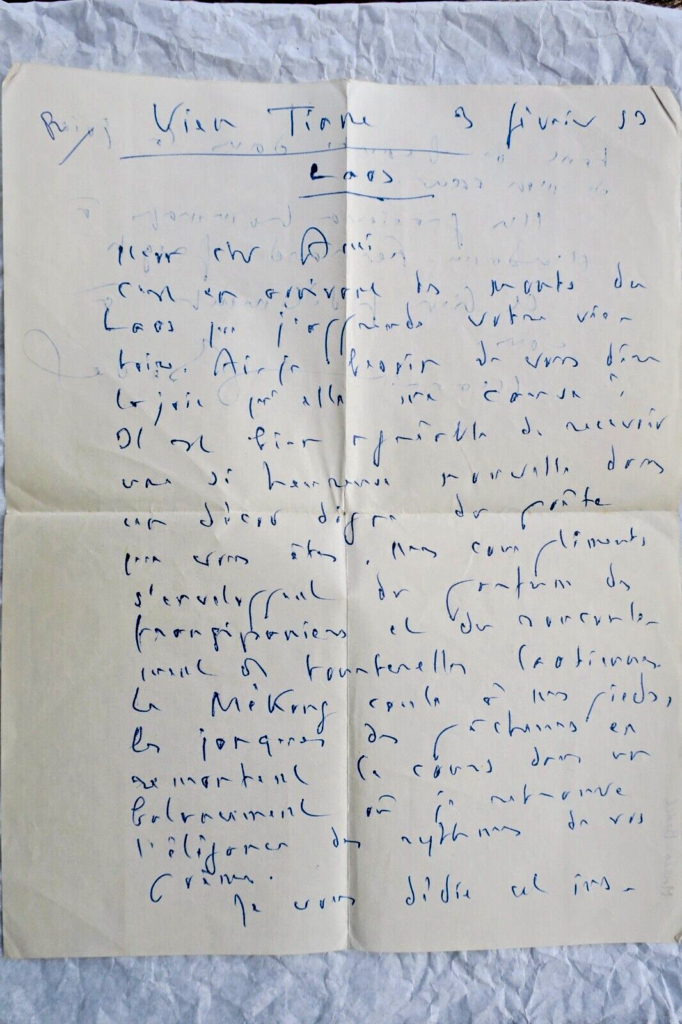 Vien Tiane 3 février 53
Laos
Mon cher Ami
c'est en arrivant les monts du
Laos que j'apprends votre vic-
toire. Ai-je besoin de vous dire
la joie qu'elle me cause ?
Il est bien agréable de recevoir
une si heureuse nouvelle dans
un décor digne du poète
que vous êtes. Mes compliments
s'enveloppent du parfum des
frangipaniers et du roucoule-
ment de tourterelles laotiennes.
Le Mékong coule à mes pieds,
les jonques des pêcheurs en
remontent le cours dans un
balancement où je retrouve
l'élégance des rythmes de vos
Je vous dédie cet ins-